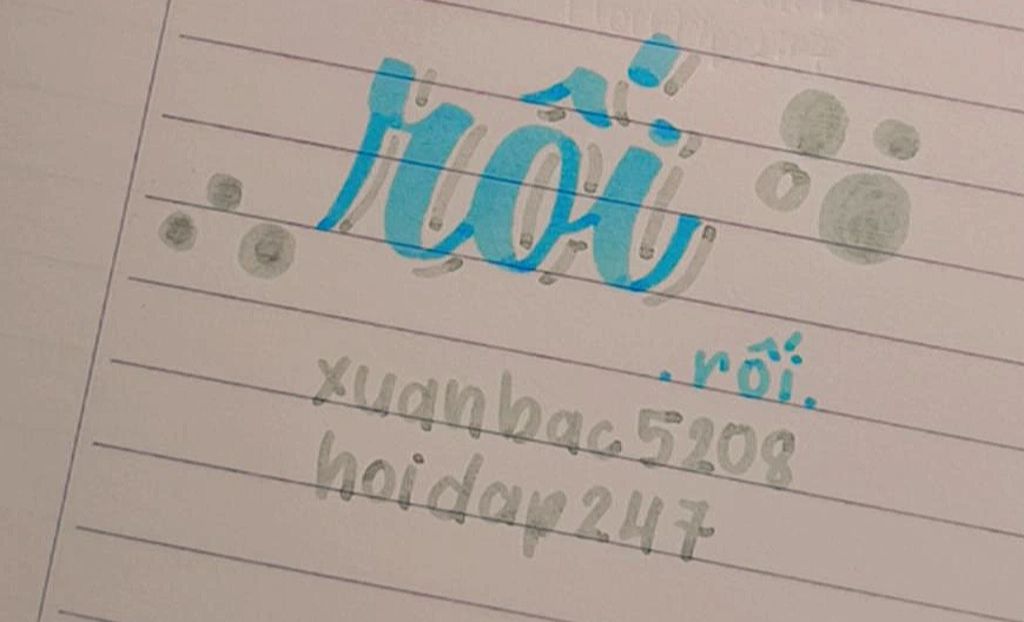 rối
.rối.
xuanbac5208
hoidap247